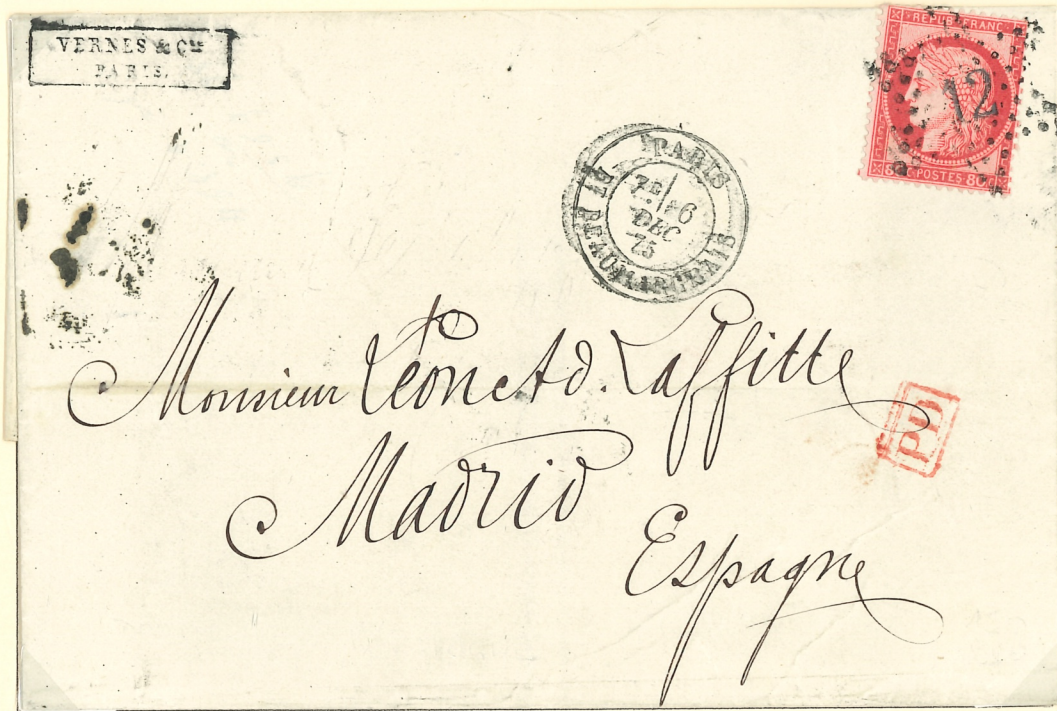 VERNES & Cie
PARIS.
REPUB. FRANC.
12
POSTES 80
PARIS
7E / 6
DEC
75
BT BEAUMARCHAIS
Monsieur Léon Ad. Laffitte
PD
Madrid
Espagne